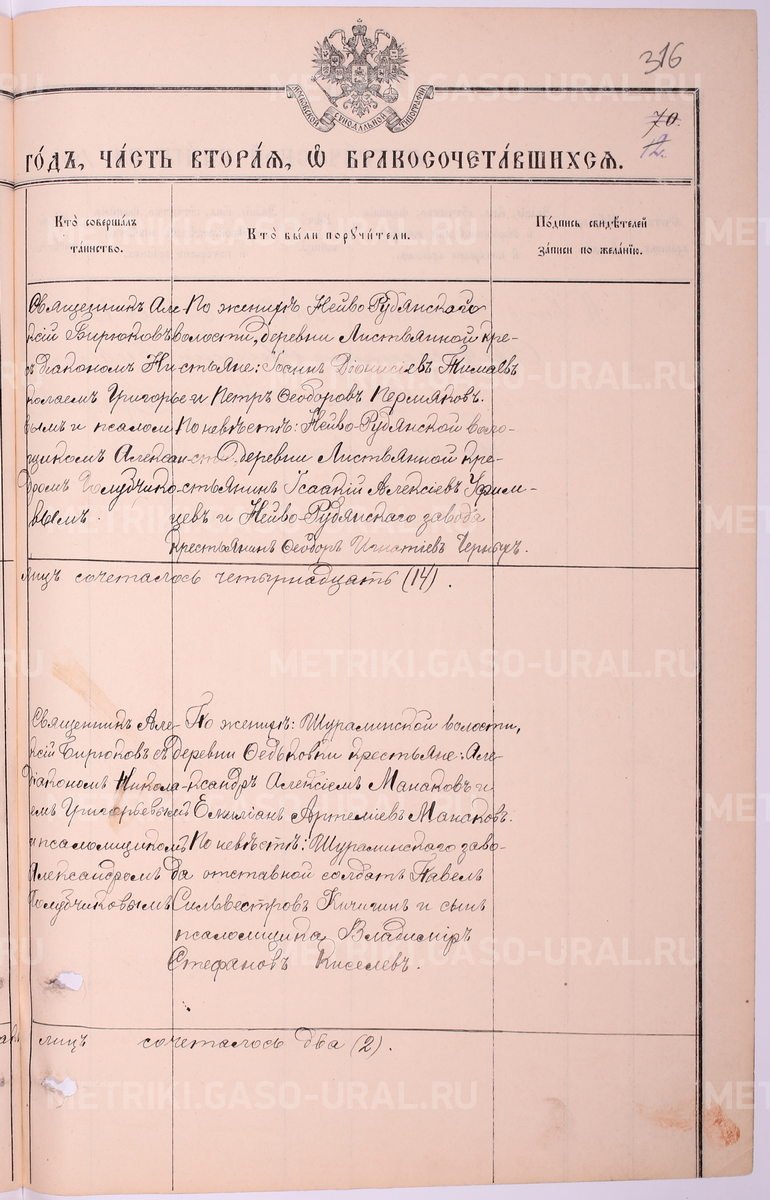 316
70.
12.
МОСКОВСКОЙ СѴНОДАЛЬНОЙ ТИПОГРАФІИ
го́дъ, ча́сть втора́ѧ, ѽ бракосочета́вшихсѧ.
Кто̀ соверша́лъ
та́инство.
Кто̀ бы́ли порꙋчи́тели.
По́дпись свидѣ́телей
за́писи по жела́нїю.
Священникъ Але
ксій Бирюковъ
съ діакономъ Ни
колаемъ Григорье
вымъ и псалом
щикомъ Алексан
дромъ Голубчико
вымъ.
По женихѣ Нейво-Рудянскаго
волости, деревни Листвянной кре-
стьяне: Іосинъ Діонисіевъ Тимаевъ
и Петръ Ѳеодоровъ Пермяковъ.
По невѣстѣ: Нейво-Рудянской воло-
сти деревни Листвянной кре-
стьянинъ Ісаакій Алексіевъ Ефим-
цевъ и Нейво-Рудянскаго завода
крестьянинъ Ѳеодоръ Игнатіевъ Черныхъ.
лицъ сочеталось четырнадцать (14).
Священникъ Але-
ксій Бирюковъ съ
діакономъ Никола-
емъ Григорьевымъ
и псаломщикомъ
Александромъ
Голубчиковымъ
По женихѣ: Шуралинской волости,
деревни Ѳедьковки крестьяне: Але-
ксандръ Алексіевъ Манаковъ и
Емиліанъ Артеміевъ Манаковъ.
По невѣстѣ: Шуралинскаго заво-
да отставной солдатъ Павелъ
Сильвестровъ Кичигинъ и сынъ
псаломщика Владиміръ
Стефановъ Киселевъ.
лицъ сочеталось два (2).
METRIKI.GASO-URAL.RU